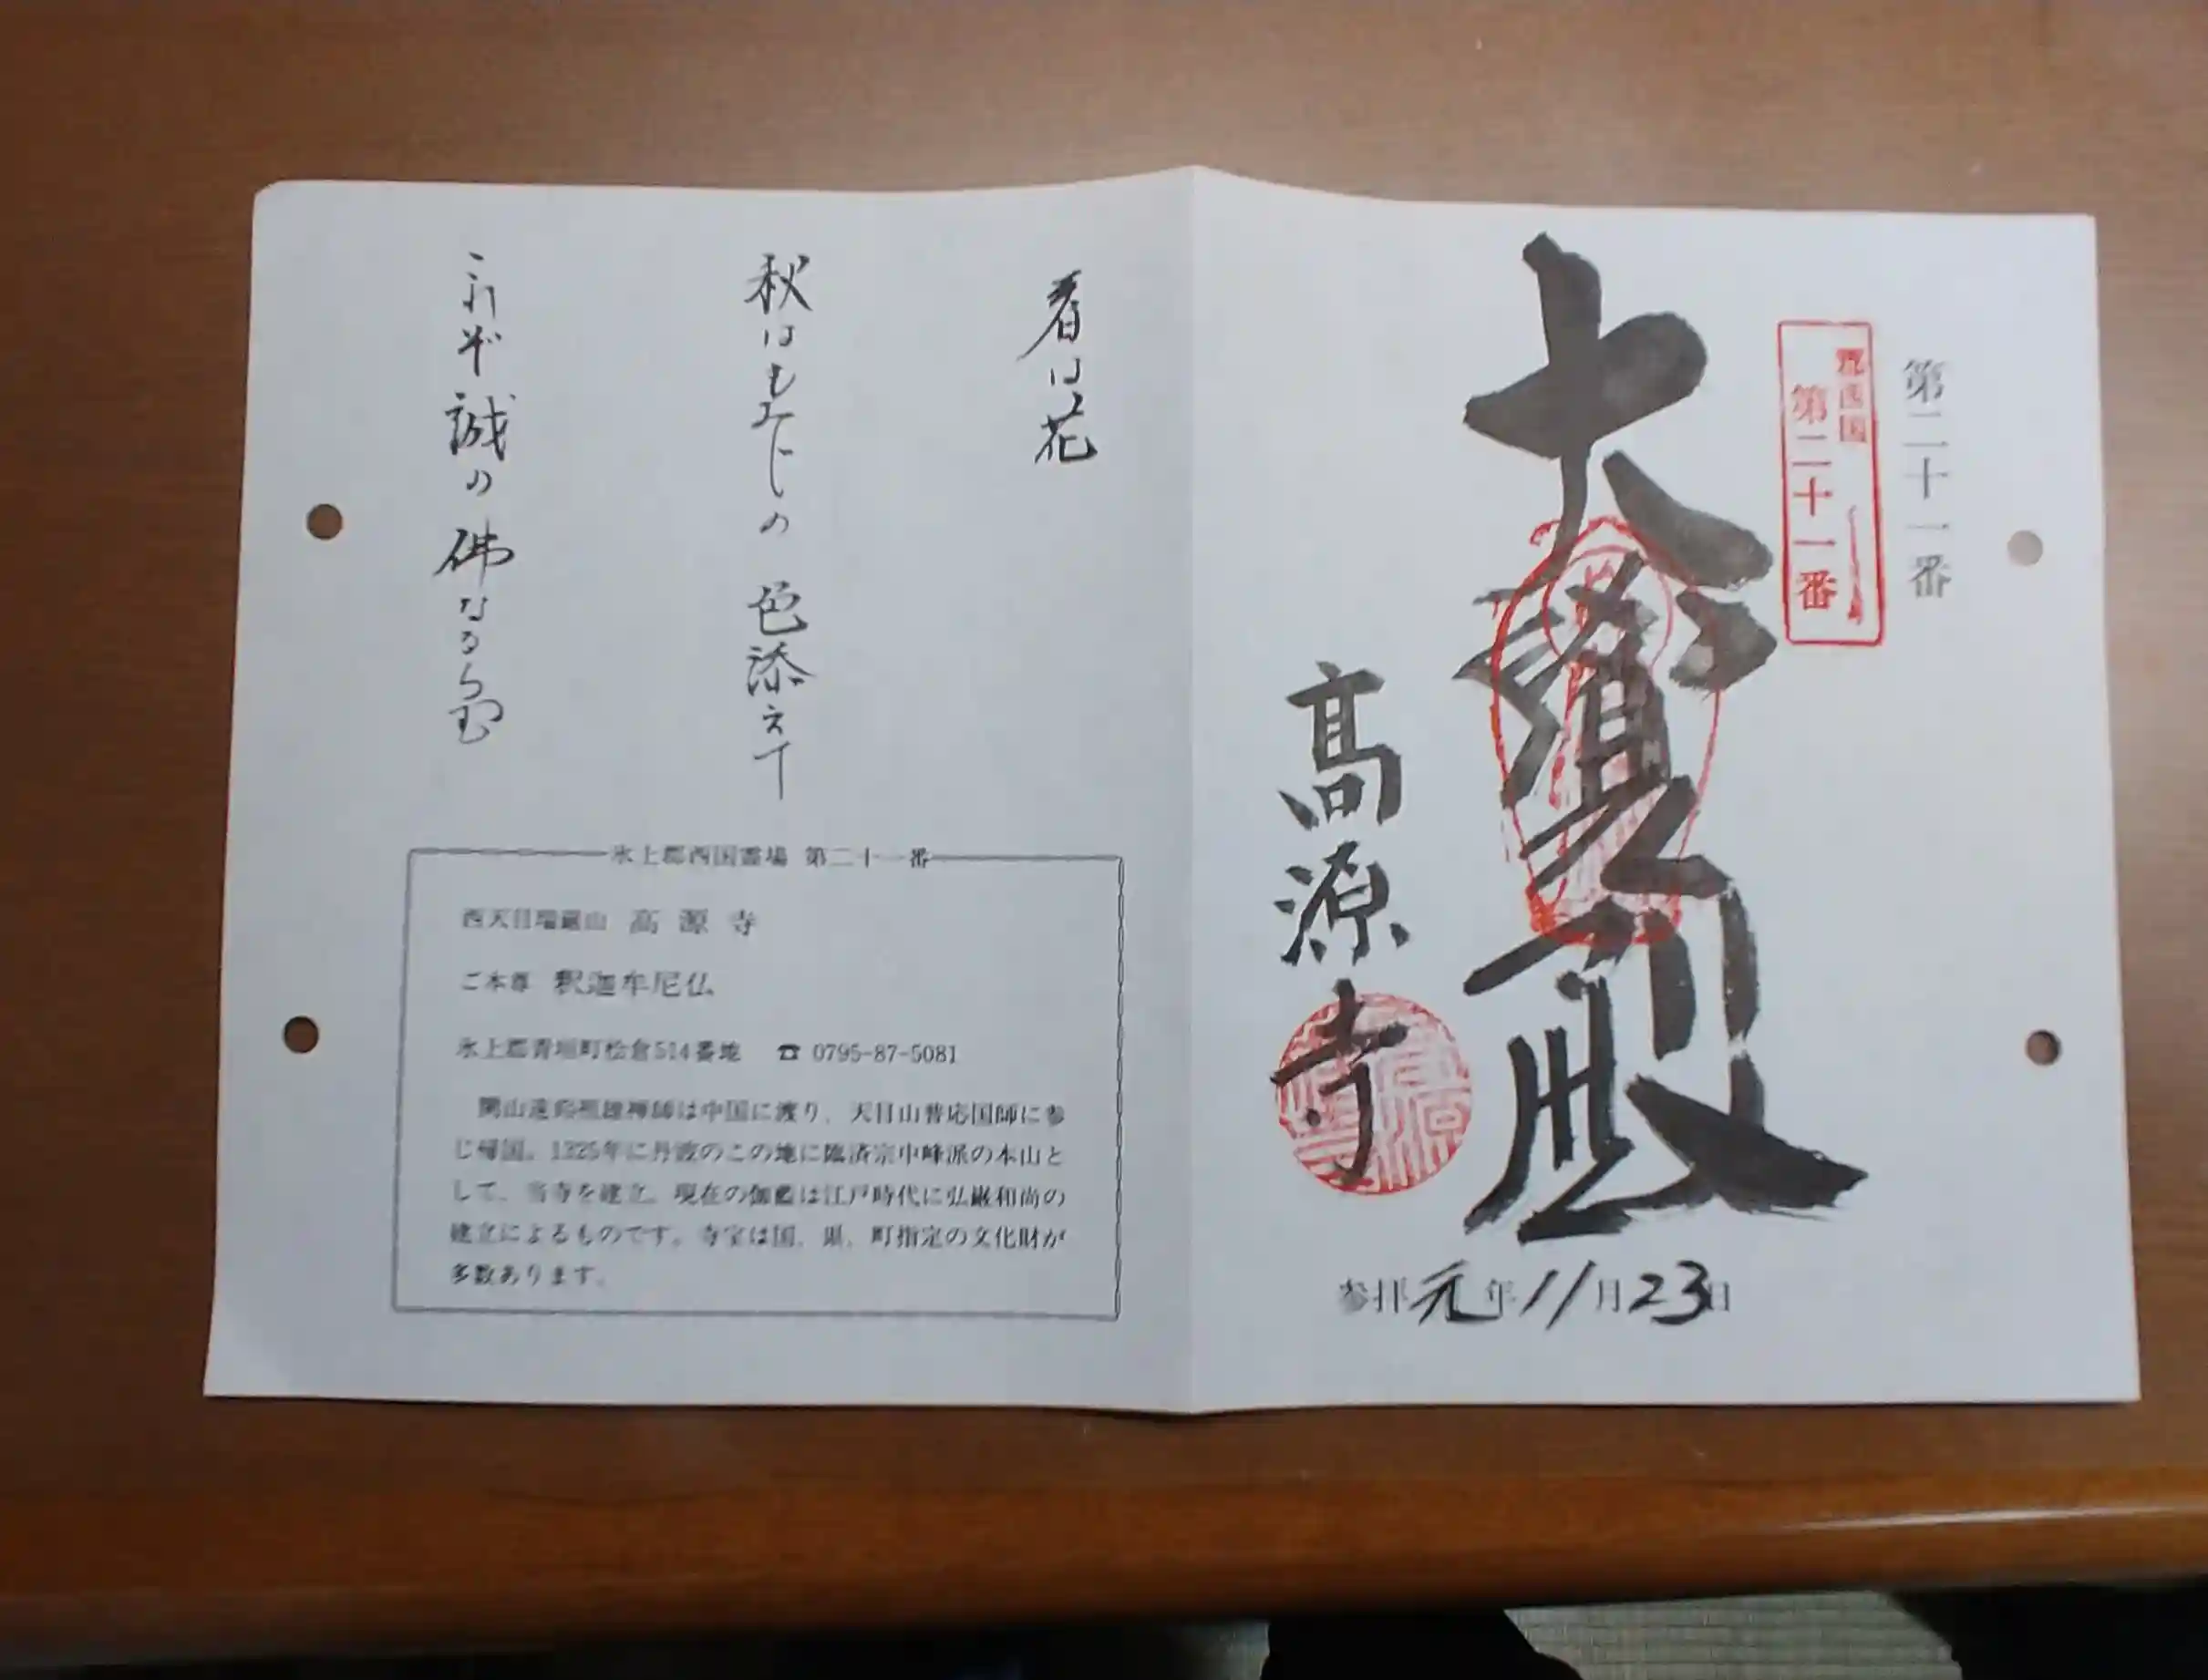 第二十一番
西国
第二十一番
大寳殿
高源寺
参拝元年11月23日
春は花
秋はもみじの色添えて
誠の佛なるらむ
氷上郡西国霊場 第二十一番
西天目瑞巌山 高源寺
ご本尊 釈迦牟尼仏
氷上郡青垣町桧倉514番地 ☎ 0795-87-5081
開山遠谿祖雄禅師は中国に渡り、天目山普応国師に参
じ帰国。1325年に丹波のこの地に臨済宗中峰派の本山と
して、当寺を建立。現在の伽藍は江戸時代に弘巌和尚の
建立によるものです。寺宝は国、県、町指定の文化財が
多数あります。